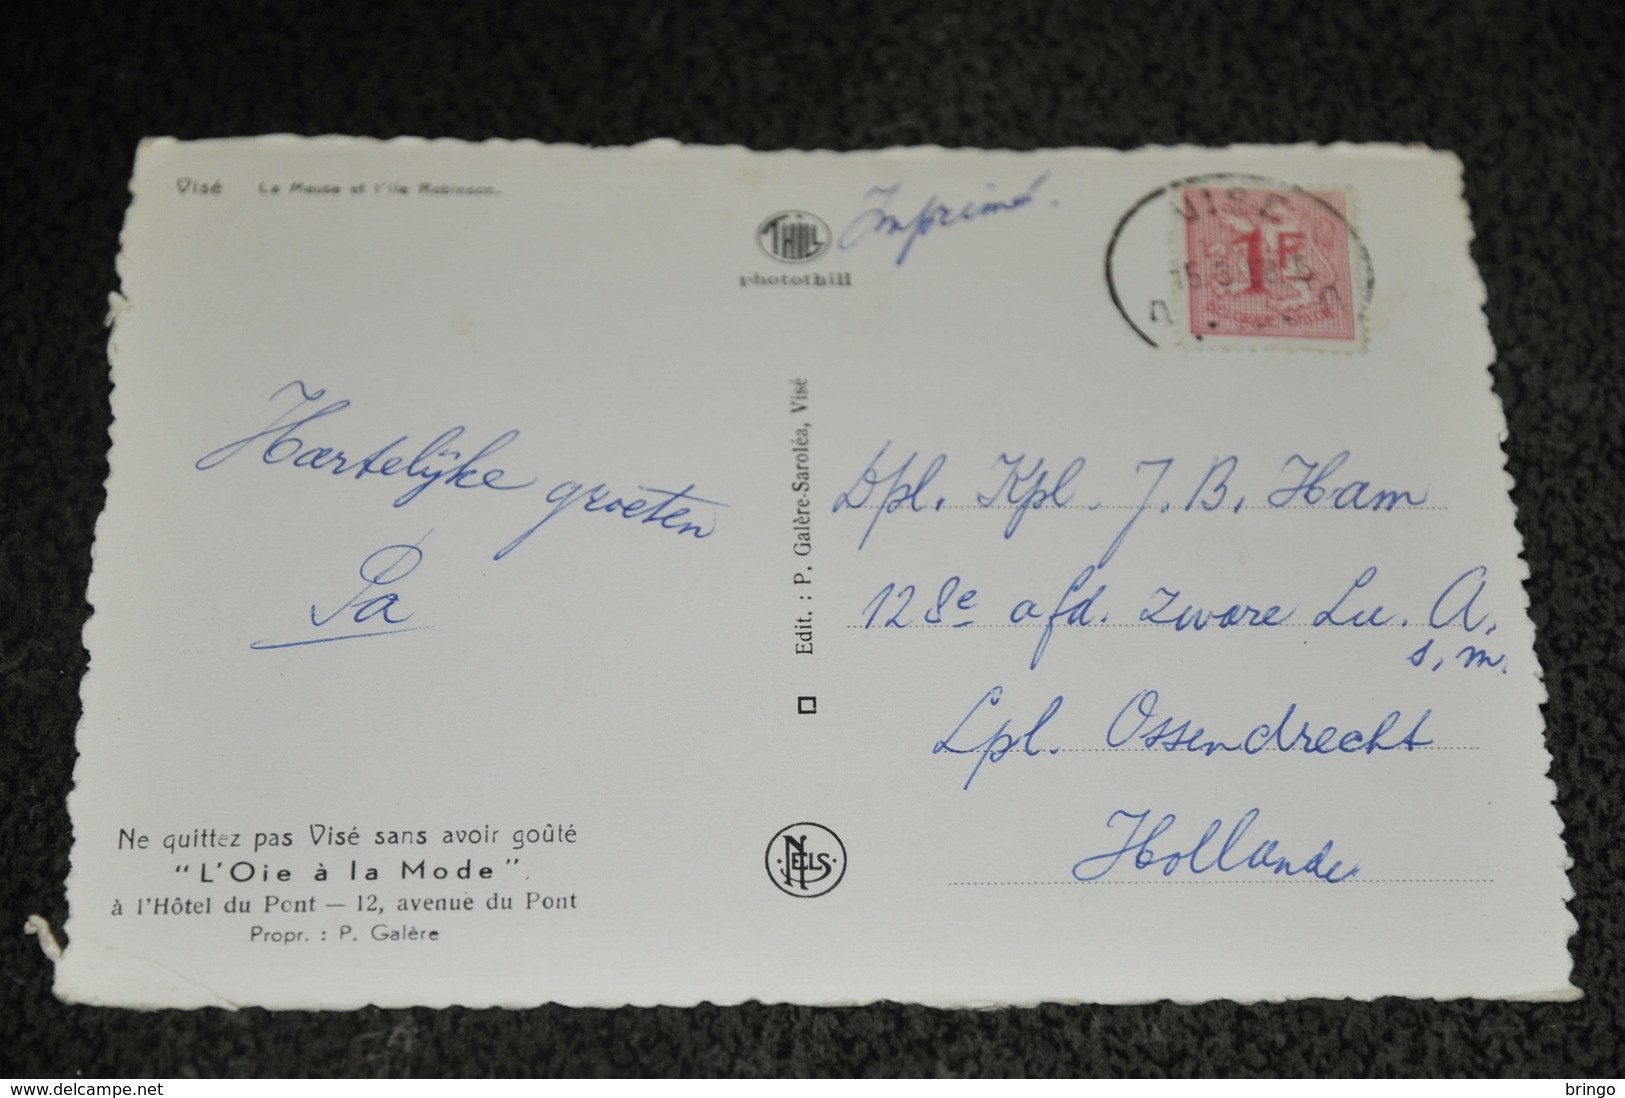 Visé La Meuse et l'île Robinson.
THILL
photothill
Imprimé.
VISE
1F
BELGIQUE BELGIE
Hartelijke groeten
Pa
Edit. : P. Galère-Saroléa, Visé
Dpl. Kpl. J. B. Ham
128e afd. zware Lu. A.
s, m.
Lpl. Ossendrecht
Hollande
NELS
Ne quittez pas Visé sans avoir goûté
"L'Oie à la Mode".
à l'Hôtel du Pont — 12, avenue du Pont
Propr. : P. Galère
www.delcampe.net
bringo